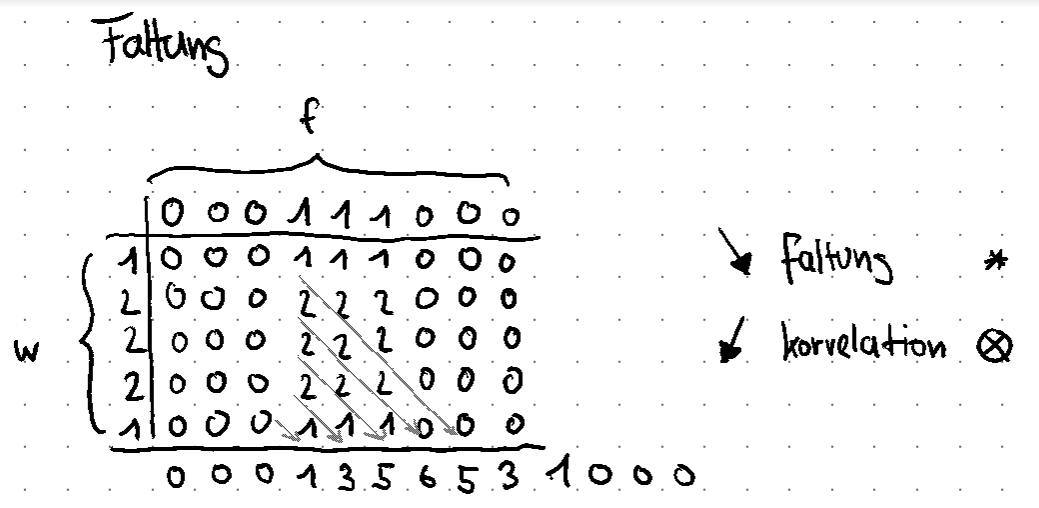 Faltung
f
0 0 0 1 1 1 0 0 0
1 0 0 0 1 1 1 0 0 0
2 0 0 0 2 2 2 0 0 0
w 2 0 0 0 2 2 2 0 0 0
2 0 0 0 2 2 2 0 0 0
1 0 0 0 1 1 1 0 0 0
0 0 0 1 3 5 6 5 3 1 0 0 0
↘ faltung *
↙ korrelation ⊗